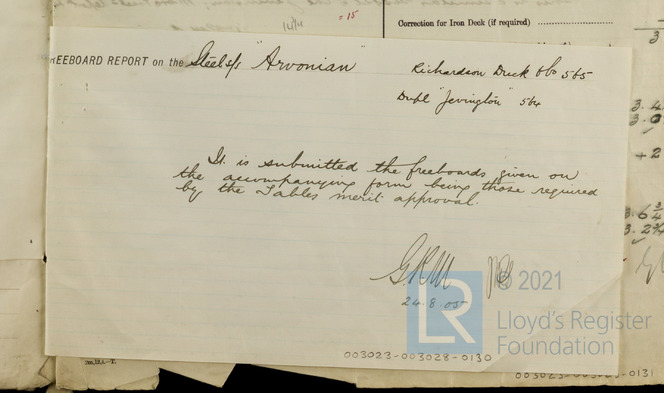 = 15
Correction for Iron Deck (if required)
3
REEBOARD REPORT on the Steel s/s "Arvonian"
Richardson Duck & Co 565
Dupl "Jevington" 564
3.
3.
+ 2
It is submitted the freeboards given on
the accompanying form being those required
by the Tables merit approval.
3. 6 3/4
3. 2 3/4
GRM
24.8.05
LR
© 2021
Lloyd's Register
Foundation
003023-003028-0130
003023-003028-0131